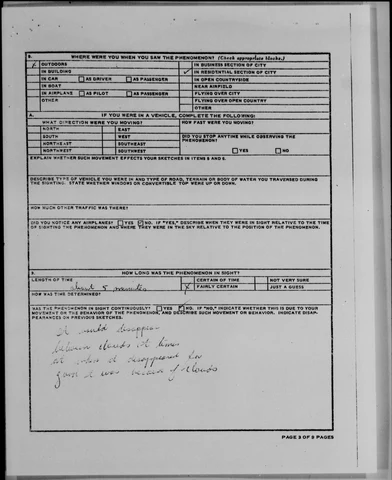 5. WHERE WERE YOU WHEN YOU SAW THE PHENOMENON? (Check appropriate blocks.)
OUTDOORS IN BUSINESS SECTION OF CITY
IN BUILDING ✓ IN RESIDENTIAL SECTION OF CITY
IN CAR AS DRIVER AS PASSENGER IN OPEN COUNTRYSIDE
IN BOAT NEAR AIRFIELD
IN AIRPLANE AS PILOT AS PASSENGER FLYING OVER CITY
OTHER FLYING OVER OPEN COUNTRY
OTHER
A. IF YOU WERE IN A VEHICLE, COMPLETE THE FOLLOWING:
WHAT DIRECTION WERE YOU MOVING? HOW FAST WERE YOU MOVING?
NORTH EAST
SOUTH WEST DID YOU STOP ANYTIME WHILE OBSERVING THE
NORTHEAST SOUTHEAST PHENOMENON?
NORTHWEST SOUTHWEST YES NO
EXPLAIN WHETHER SUCH MOVEMENT AFFECTS YOUR SKETCHES IN ITEMS 6 AND 8.
DESCRIBE TYPE OF VEHICLE YOU WERE IN AND TYPE OF ROAD, TERRAIN OR BODY OF WATER YOU TRAVERSED DURING
THE SIGHTING. STATE WHETHER WINDOWS OR CONVERTIBLE TOP WERE UP OR DOWN.
HOW MUCH OTHER TRAFFIC WAS THERE?
DID YOU NOTICE ANY AIRPLANES? YES ✓ NO. IF "YES," DESCRIBE WHEN THEY WERE IN SIGHT RELATIVE TO THE TIME
OF SIGHTING THE PHENOMENON AND WHERE THEY WERE IN THE SKY RELATIVE TO THE POSITION OF THE PHENOMENON.
HOW LONG WAS THE PHENOMENON IN SIGHT?
LENGTH OF TIME about 5 minutes CERTAIN OF TIME NOT VERY SURE
X FAIRLY CERTAIN JUST A GUESS
HOW WAS TIME DETERMINED?
WAS THE PHENOMENON IN SIGHT CONTINUOUSLY? YES NO. IF "NO," INDICATE WHETHER THIS IS DUE TO YOUR
MOVEMENT OR THE BEHAVIOR OF THE PHENOMENON, AND DESCRIBE SUCH MOVEMENT OR BEHAVIOR. INDICATE DISAP-
PEARANCES ON PREVIOUS SKETCHES.
It would disappear
between clouds at times
when it disappeared for
good it was because of clouds
PAGE 3 OF 5 PAGES